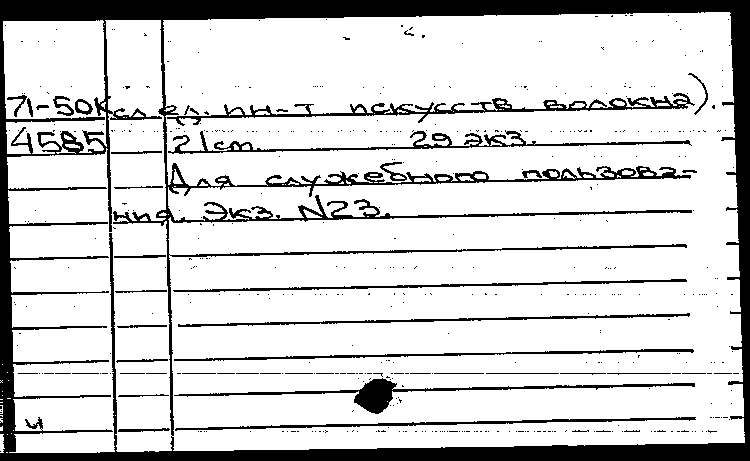 2.
71-50К след. ин-т искусств. волокна).
4585 21cm. 29 экз.
Для служебного пользова-
ния. Экз. N23.
и